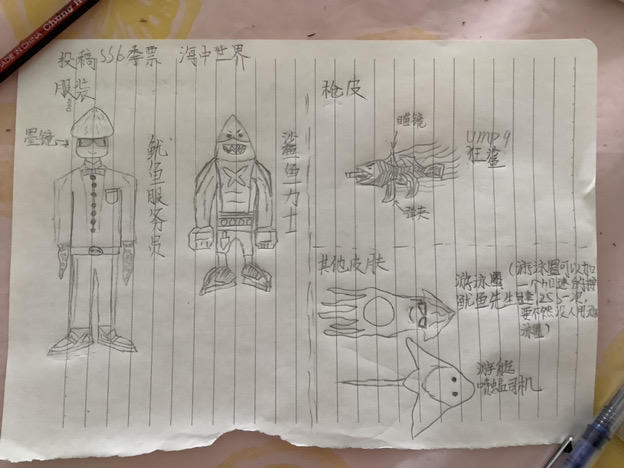 投稿SS6季票 海中世界
服装
墨镜
鱿鱼服务员
鲨鱼力士
枪皮
瞄镜
UMP9
狂鲨
弹夹
其他皮肤
游泳圈
鱿鱼先生
(游泳圈可以加
一个加速
要不然没人用
泳圈)
游艇
司机
MADE IN CHINA